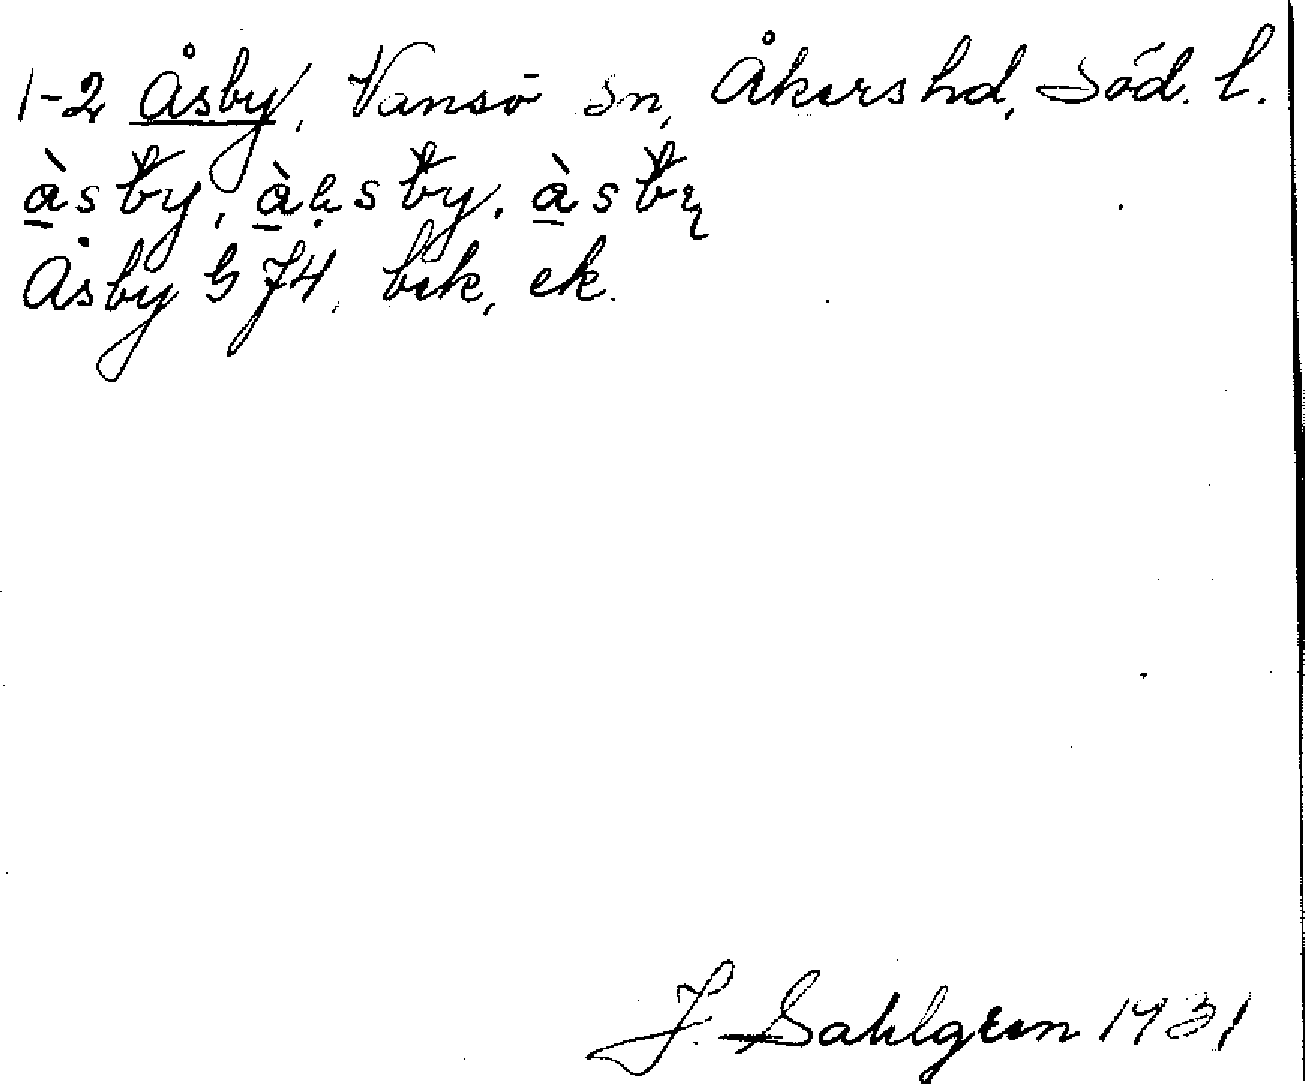 1-2 Åsby, Vansö sn, Åkers hd, Söd. l.
àsby, àₐsby, àsby
Åsby G J4, bek, ek.
J. Sahlgren 1931